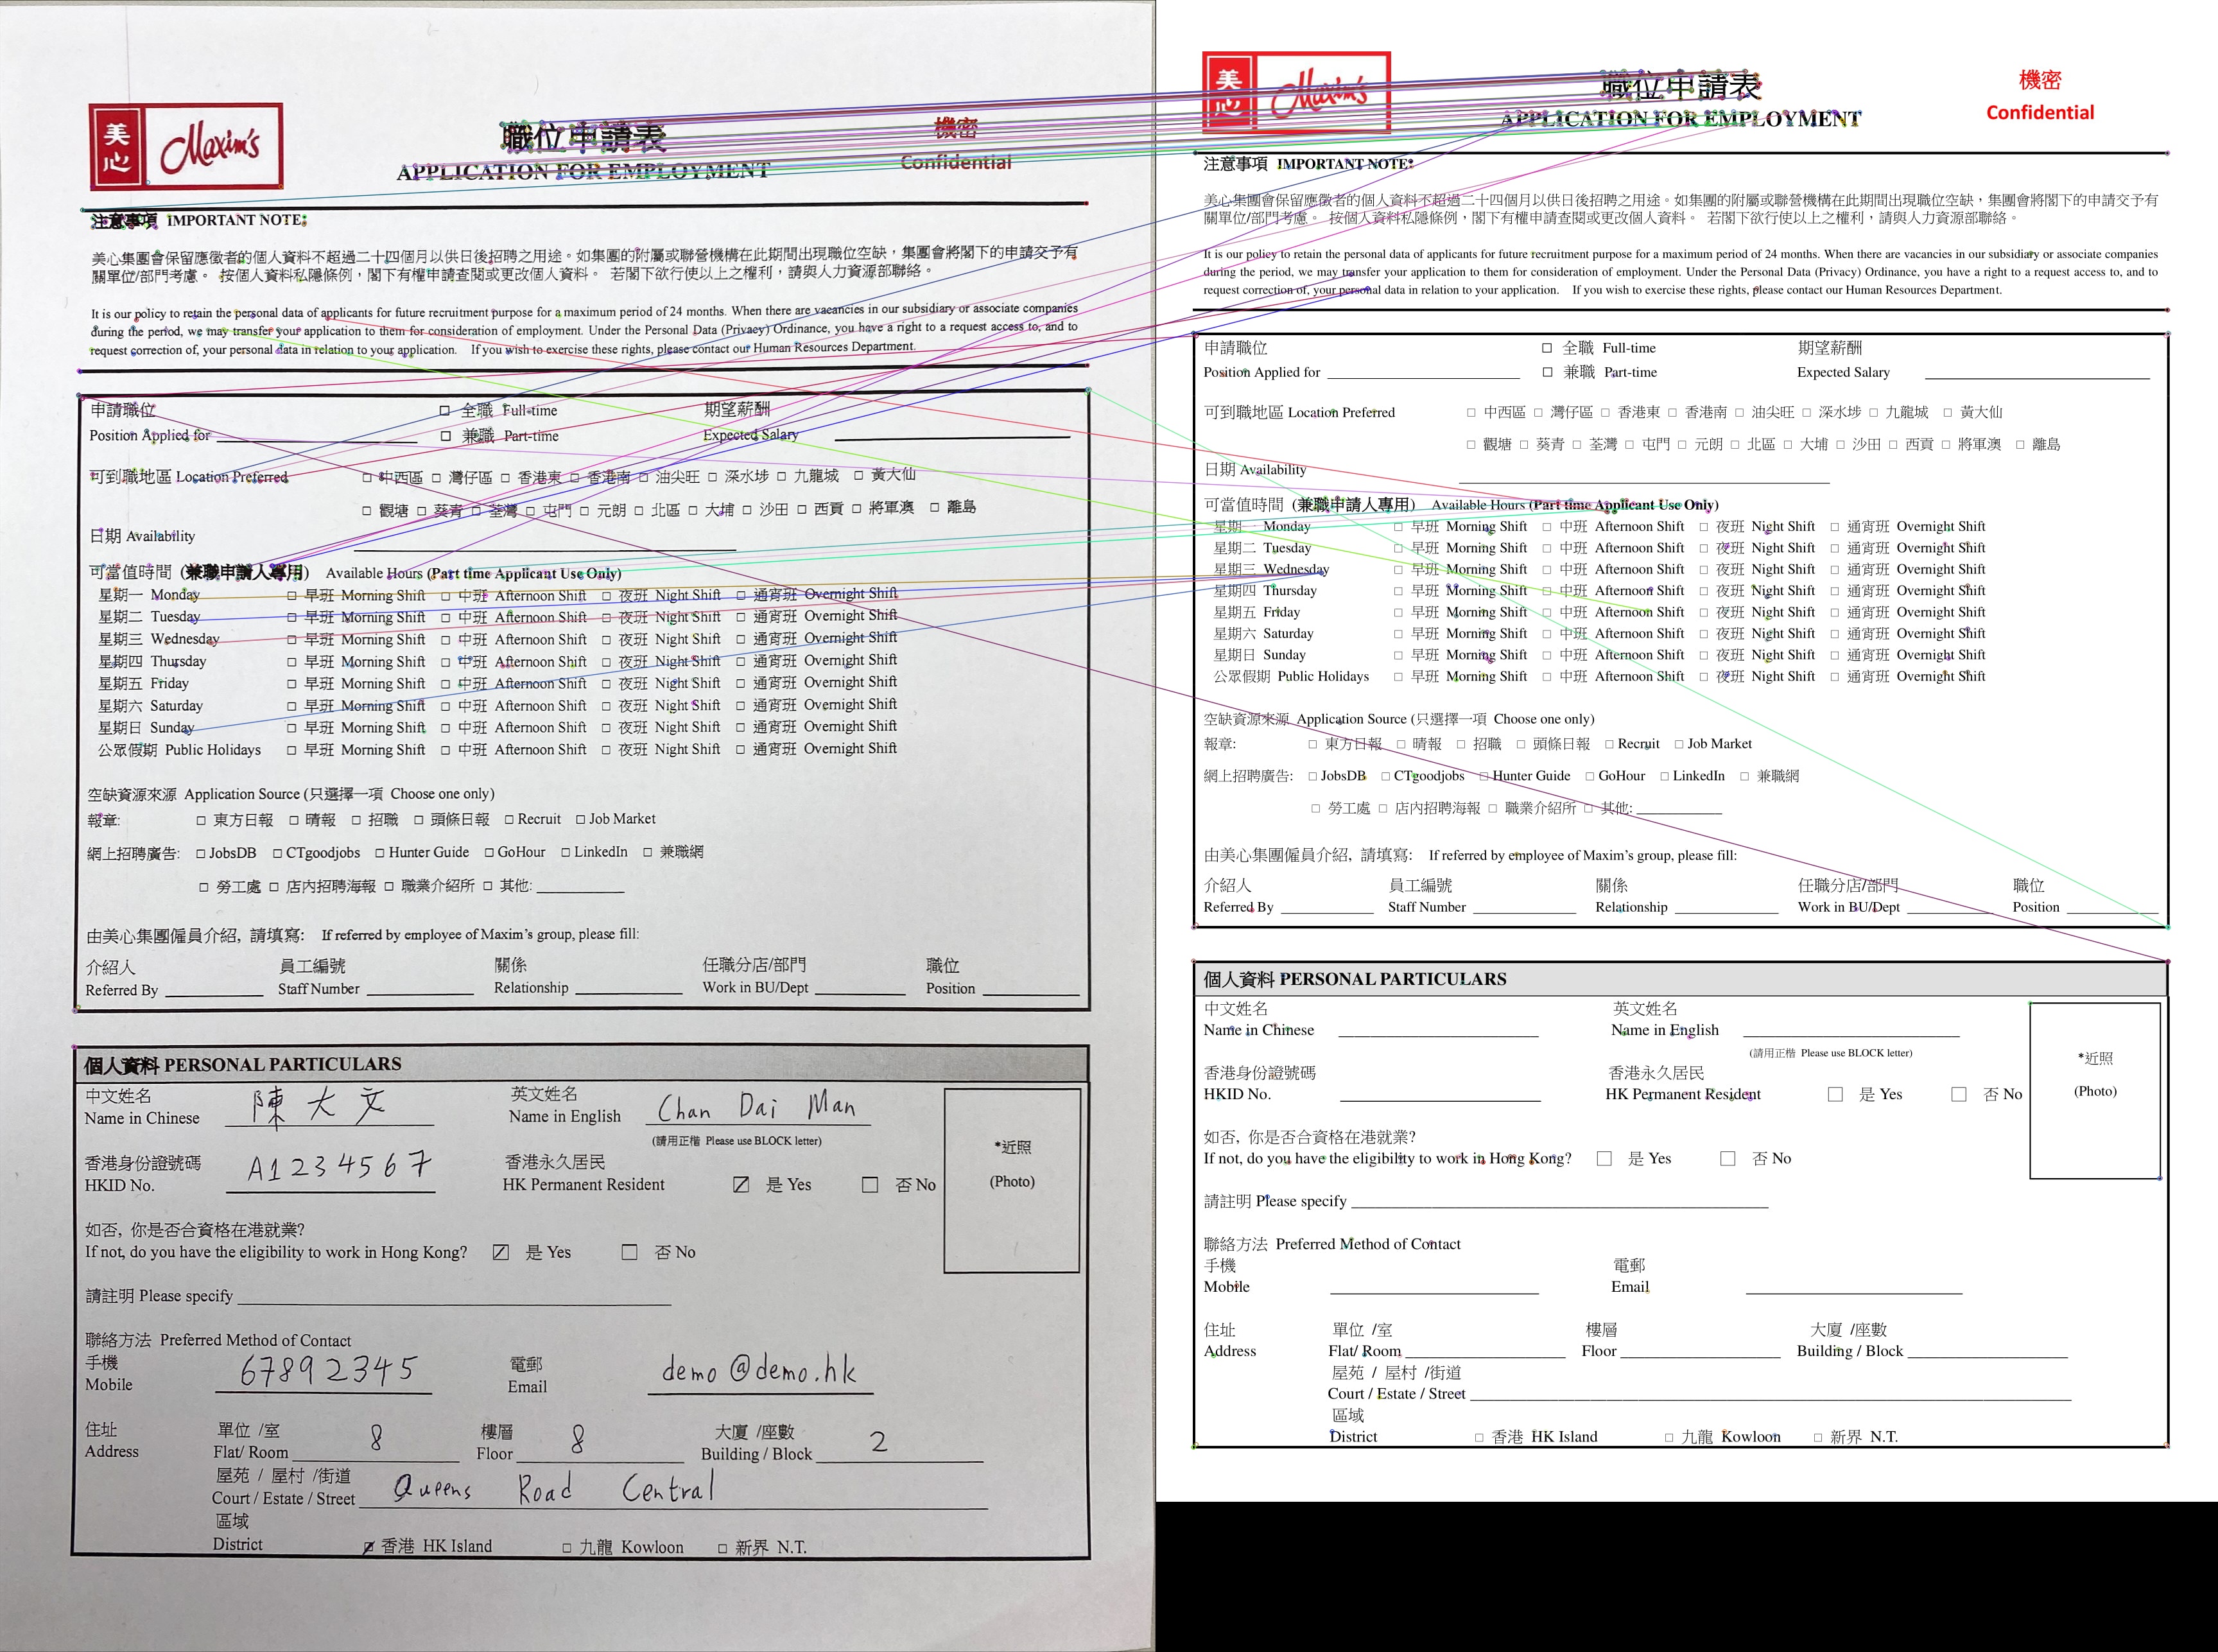 美心 Maxim's
職位申請表
APPLICATION FOR EMPLOYMENT
機密
Confidential
注意事項 IMPORTANT NOTE:
美心集團會保留應徵者的個人資料不超過二十四個月以供日後招聘之用途。如集團的附屬或聯營機構在此期間出現職位空缺，集團會將閣下的申請交予有
關單位/部門考慮。 按個人資料私隱條例，閣下有權申請查閱或更改個人資料。 若閣下欲行使以上之權利，請與人力資源部聯絡。
It is our policy to retain the personal data of applicants for future recruitment purpose for a maximum period of 24 months. When there are vacancies in our subsidiary or associate companies
during the period, we may transfer your application to them for consideration of employment. Under the Personal Data (Privacy) Ordinance, you have a right to a request access to, and to
request correction of, your personal data in relation to your application. If you wish to exercise these rights, please contact our Human Resources Department.
申請職位 □ 全職 Full-time 期望薪酬
Position Applied for □ 兼職 Part-time Expected Salary
可到職地區 Location Preferred □ 中西區 □ 灣仔區 □ 香港東 □ 香港南 □ 油尖旺 □ 深水埗 □ 九龍城 □ 黃大仙
□ 觀塘 □ 葵青 □ 荃灣 □ 屯門 □ 元朗 □ 北區 □ 大埔 □ 沙田 □ 西貢 □ 將軍澳 □ 離島
日期 Availability
可當值時間 (兼職申請人專用) Available Hours (Part time Applicant Use Only)
星期一 Monday □ 早班 Morning Shift □ 中班 Afternoon Shift □ 夜班 Night Shift □ 通宵班 Overnight Shift
星期二 Tuesday □ 早班 Morning Shift □ 中班 Afternoon Shift □ 夜班 Night Shift □ 通宵班 Overnight Shift
星期三 Wednesday □ 早班 Morning Shift □ 中班 Afternoon Shift □ 夜班 Night Shift □ 通宵班 Overnight Shift
星期四 Thursday □ 早班 Morning Shift □ 中班 Afternoon Shift □ 夜班 Night Shift □ 通宵班 Overnight Shift
星期五 Friday □ 早班 Morning Shift □ 中班 Afternoon Shift □ 夜班 Night Shift □ 通宵班 Overnight Shift
星期六 Saturday □ 早班 Morning Shift □ 中班 Afternoon Shift □ 夜班 Night Shift □ 通宵班 Overnight Shift
星期日 Sunday □ 早班 Morning Shift □ 中班 Afternoon Shift □ 夜班 Night Shift □ 通宵班 Overnight Shift
公眾假期 Public Holidays □ 早班 Morning Shift □ 中班 Afternoon Shift □ 夜班 Night Shift □ 通宵班 Overnight Shift
空缺資源來源 Application Source (只選擇一項 Choose one only)
報章: □ 東方日報 □ 晴報 □ 招職 □ 頭條日報 □ Recruit □ Job Market
網上招聘廣告: □ JobsDB □ CTgoodjobs □ Hunter Guide □ GoHour □ LinkedIn □ 兼職網
□ 勞工處 □ 店內招聘海報 □ 職業介紹所 □ 其他:
由美心集團僱員介紹, 請填寫: If referred by employee of Maxim's group, please fill:
介紹人 員工編號 關係 任職分店/部門 職位
Referred By Staff Number Relationship Work in BU/Dept Position
個人資料 PERSONAL PARTICULARS
中文姓名 陳大文 英文姓名
Name in Chinese Name in English Chan Dai Man
(請用正楷 Please use BLOCK letter)
*近照
(Photo)
香港身份證號碼 A1234567 香港永久居民
HKID No. HK Permanent Resident ☑ 是 Yes □ 否 No
如否, 你是否合資格在港就業?
If not, do you have the eligibility to work in Hong Kong? ☑ 是 Yes □ 否 No
請註明 Please specify
聯絡方法 Preferred Method of Contact
手機 67892345 電郵 demo@demo.hk
Mobile Email
住址 單位 /室 8 樓層 8 大廈 /座數 2
Address Flat/ Room Floor Building / Block
屋苑 / 屋村 /街道
Court / Estate / Street Queens Road Central
區域
District ☑ 香港 HK Island □ 九龍 Kowloon □ 新界 N.T.
美心 Maxim's
職位申請表
APPLICATION FOR EMPLOYMENT
機密
Confidential
注意事項 IMPORTANT NOTE:
美心集團會保留應徵者的個人資料不超過二十四個月以供日後招聘之用途。如集團的附屬或聯營機構在此期間出現職位空缺，集團會將閣下的申請交予有
關單位/部門考慮。 按個人資料私隱條例，閣下有權申請查閱或更改個人資料。 若閣下欲行使以上之權利，請與人力資源部聯絡。
It is our policy to retain the personal data of applicants for future recruitment purpose for a maximum period of 24 months. When there are vacancies in our subsidiary or associate companies
during the period, we may transfer your application to them for consideration of employment. Under the Personal Data (Privacy) Ordinance, you have a right to a request access to, and to
request correction of, your personal data in relation to your application. If you wish to exercise these rights, please contact our Human Resources Department.
申請職位 □ 全職 Full-time 期望薪酬
Position Applied for □ 兼職 Part-time Expected Salary
可到職地區 Location Preferred □ 中西區 □ 灣仔區 □ 香港東 □ 香港南 □ 油尖旺 □ 深水埗 □ 九龍城 □ 黃大仙
□ 觀塘 □ 葵青 □ 荃灣 □ 屯門 □ 元朗 □ 北區 □ 大埔 □ 沙田 □ 西貢 □ 將軍澳 □ 離島
日期 Availability
可當值時間 (兼職申請人專用) Available Hours (Part time Applicant Use Only)
星期一 Monday □ 早班 Morning Shift □ 中班 Afternoon Shift □ 夜班 Night Shift □ 通宵班 Overnight Shift
星期二 Tuesday □ 早班 Morning Shift □ 中班 Afternoon Shift □ 夜班 Night Shift □ 通宵班 Overnight Shift
星期三 Wednesday □ 早班 Morning Shift □ 中班 Afternoon Shift □ 夜班 Night Shift □ 通宵班 Overnight Shift
星期四 Thursday □ 早班 Morning Shift □ 中班 Afternoon Shift □ 夜班 Night Shift □ 通宵班 Overnight Shift
星期五 Friday □ 早班 Morning Shift □ 中班 Afternoon Shift □ 夜班 Night Shift □ 通宵班 Overnight Shift
星期六 Saturday □ 早班 Morning Shift □ 中班 Afternoon Shift □ 夜班 Night Shift □ 通宵班 Overnight Shift
星期日 Sunday □ 早班 Morning Shift □ 中班 Afternoon Shift □ 夜班 Night Shift □ 通宵班 Overnight Shift
公眾假期 Public Holidays □ 早班 Morning Shift □ 中班 Afternoon Shift □ 夜班 Night Shift □ 通宵班 Overnight Shift
空缺資源來源 Application Source (只選擇一項 Choose one only)
報章: □ 東方日報 □ 晴報 □ 招職 □ 頭條日報 □ Recruit □ Job Market
網上招聘廣告: □ JobsDB □ CTgoodjobs □ Hunter Guide □ GoHour □ LinkedIn □ 兼職網
□ 勞工處 □ 店內招聘海報 □ 職業介紹所 □ 其他:
由美心集團僱員介紹, 請填寫: If referred by employee of Maxim's group, please fill:
介紹人 員工編號 關係 任職分店/部門 職位
Referred By Staff Number Relationship Work in BU/Dept Position
個人資料 PERSONAL PARTICULARS
中文姓名 英文姓名
Name in Chinese Name in English
(請用正楷 Please use BLOCK letter)
*近照
(Photo)
香港身份證號碼 香港永久居民
HKID No. HK Permanent Resident □ 是 Yes □ 否 No
如否, 你是否合資格在港就業?
If not, do you have the eligibility to work in Hong Kong? □ 是 Yes □ 否 No
請註明 Please specify
聯絡方法 Preferred Method of Contact
手機 電郵
Mobile Email
住址 單位 /室 樓層 大廈 /座數
Address Flat/ Room Floor Building / Block
屋苑 / 屋村 /街道
Court / Estate / Street
區域
District □ 香港 HK Island □ 九龍 Kowloon □ 新界 N.T.